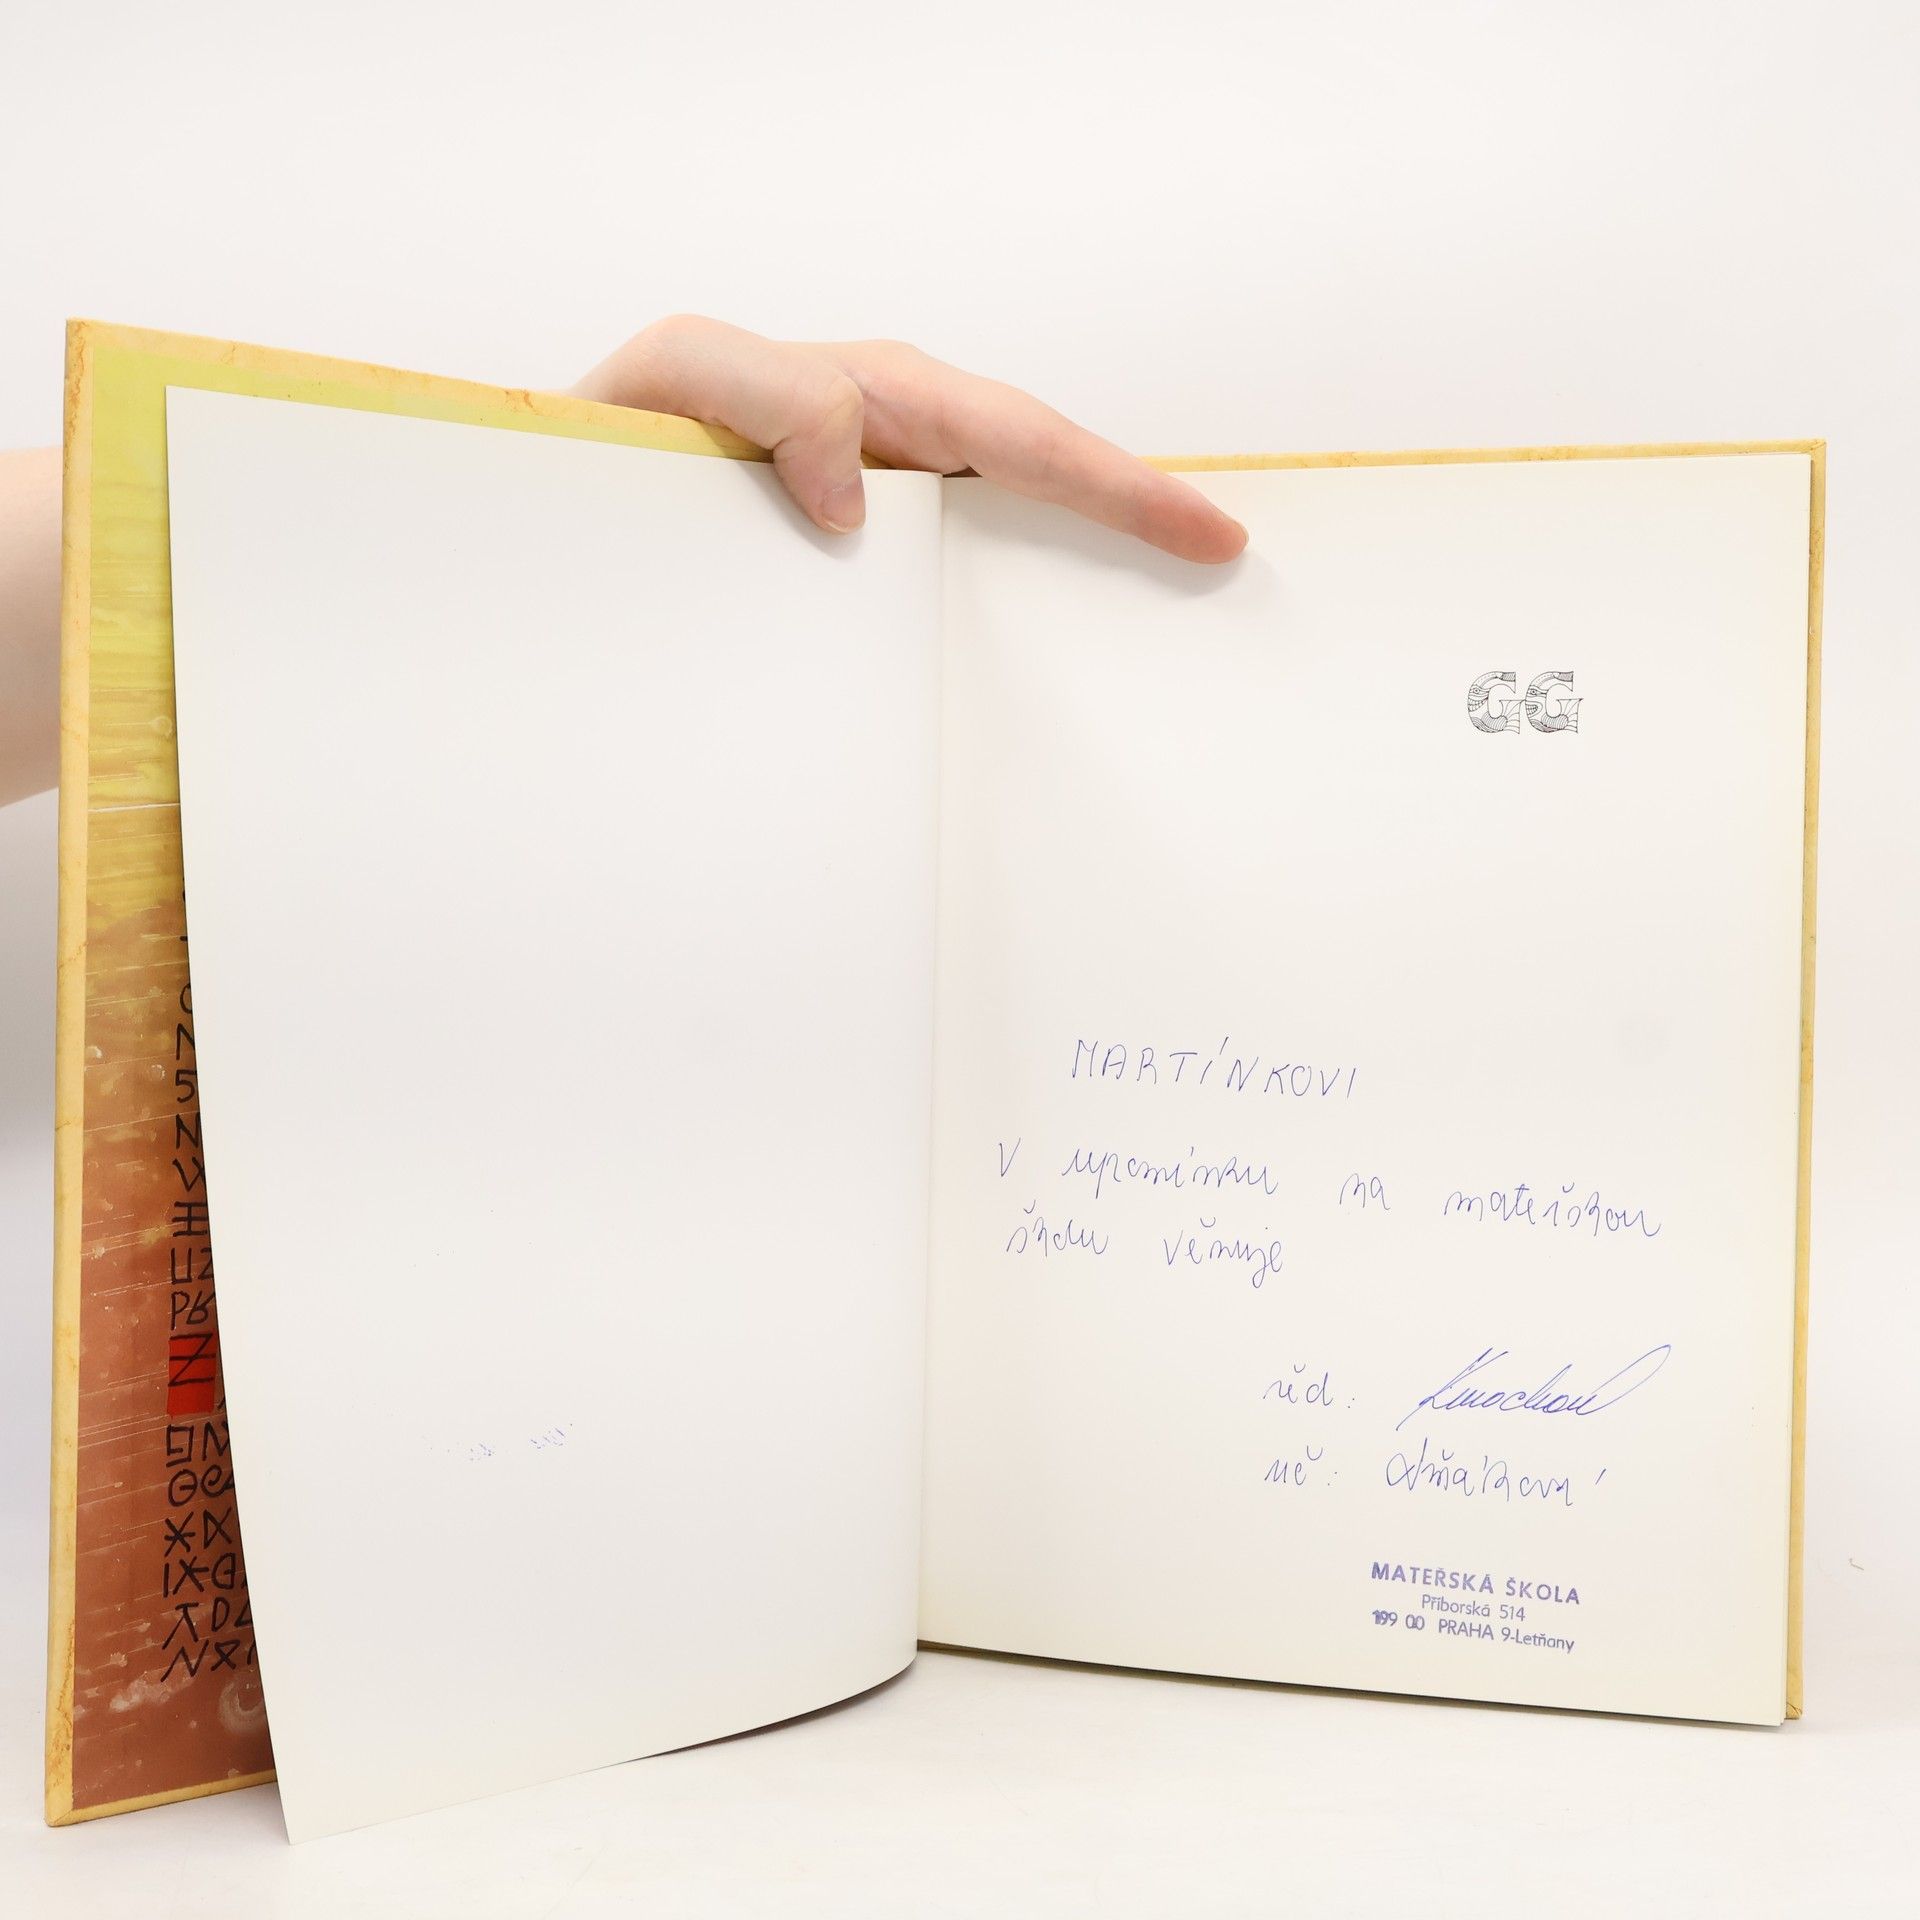 GG
MARTÍNKOVI
V upomínku na mateřskou
školu věnuje
řed:
uč:
MATEŘSKÁ ŠKOLA
Příborská 514
199 00 PRAHA 9-Letňany